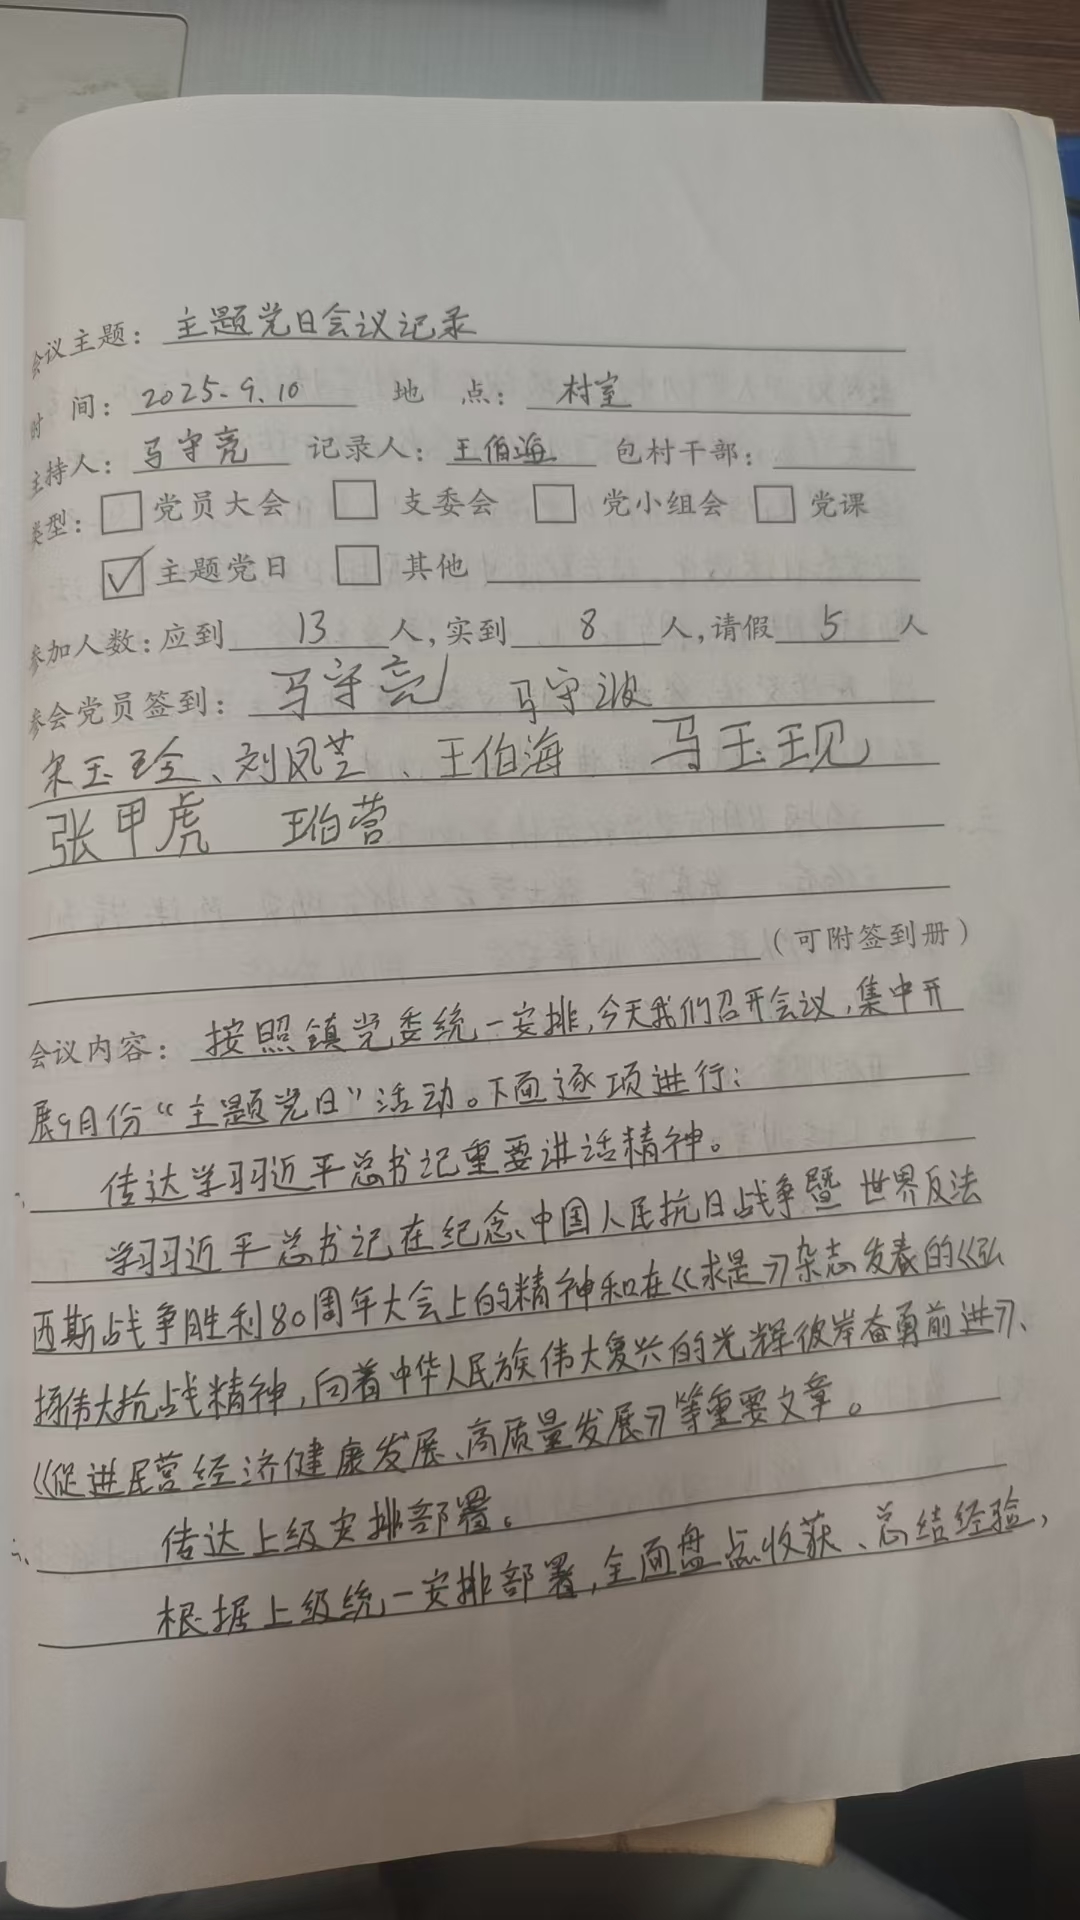 会议主题：主题党日会议记录
时 间：2025.9.10 地 点：村室
主持人：马守亮 记录人：王伯海 包村干部：
类型：□党员大会 □支委会 □党小组会 □党课
☑主题党日 □其他
参加人数：应到 13 人，实到 8 人，请假 5 人
参会党员签到：马守亮 马守波
宋玉全、刘凤芝、王伯海 马玉现
张甲虎 王伯营
（可附签到册）
会议内容：按照镇党委统一安排，今天我们召开会议，集中开
展9月份“主题党日”活动。下面逐项进行：
传达学习习近平总书记重要讲话精神。
学习习近平总书记在纪念中国人民抗日战争暨世界反法
西斯战争胜利80周年大会上的精神和在《求是》杂志发表的《弘
扬伟大抗战精神，向着中华人民族伟大复兴的光辉彼岸奋勇前进》、
《促进民营经济健康发展、高质量发展》等重要文章。
二、传达上级安排部署。
根据上级统一安排部署，全面盘点收获、总结经验，